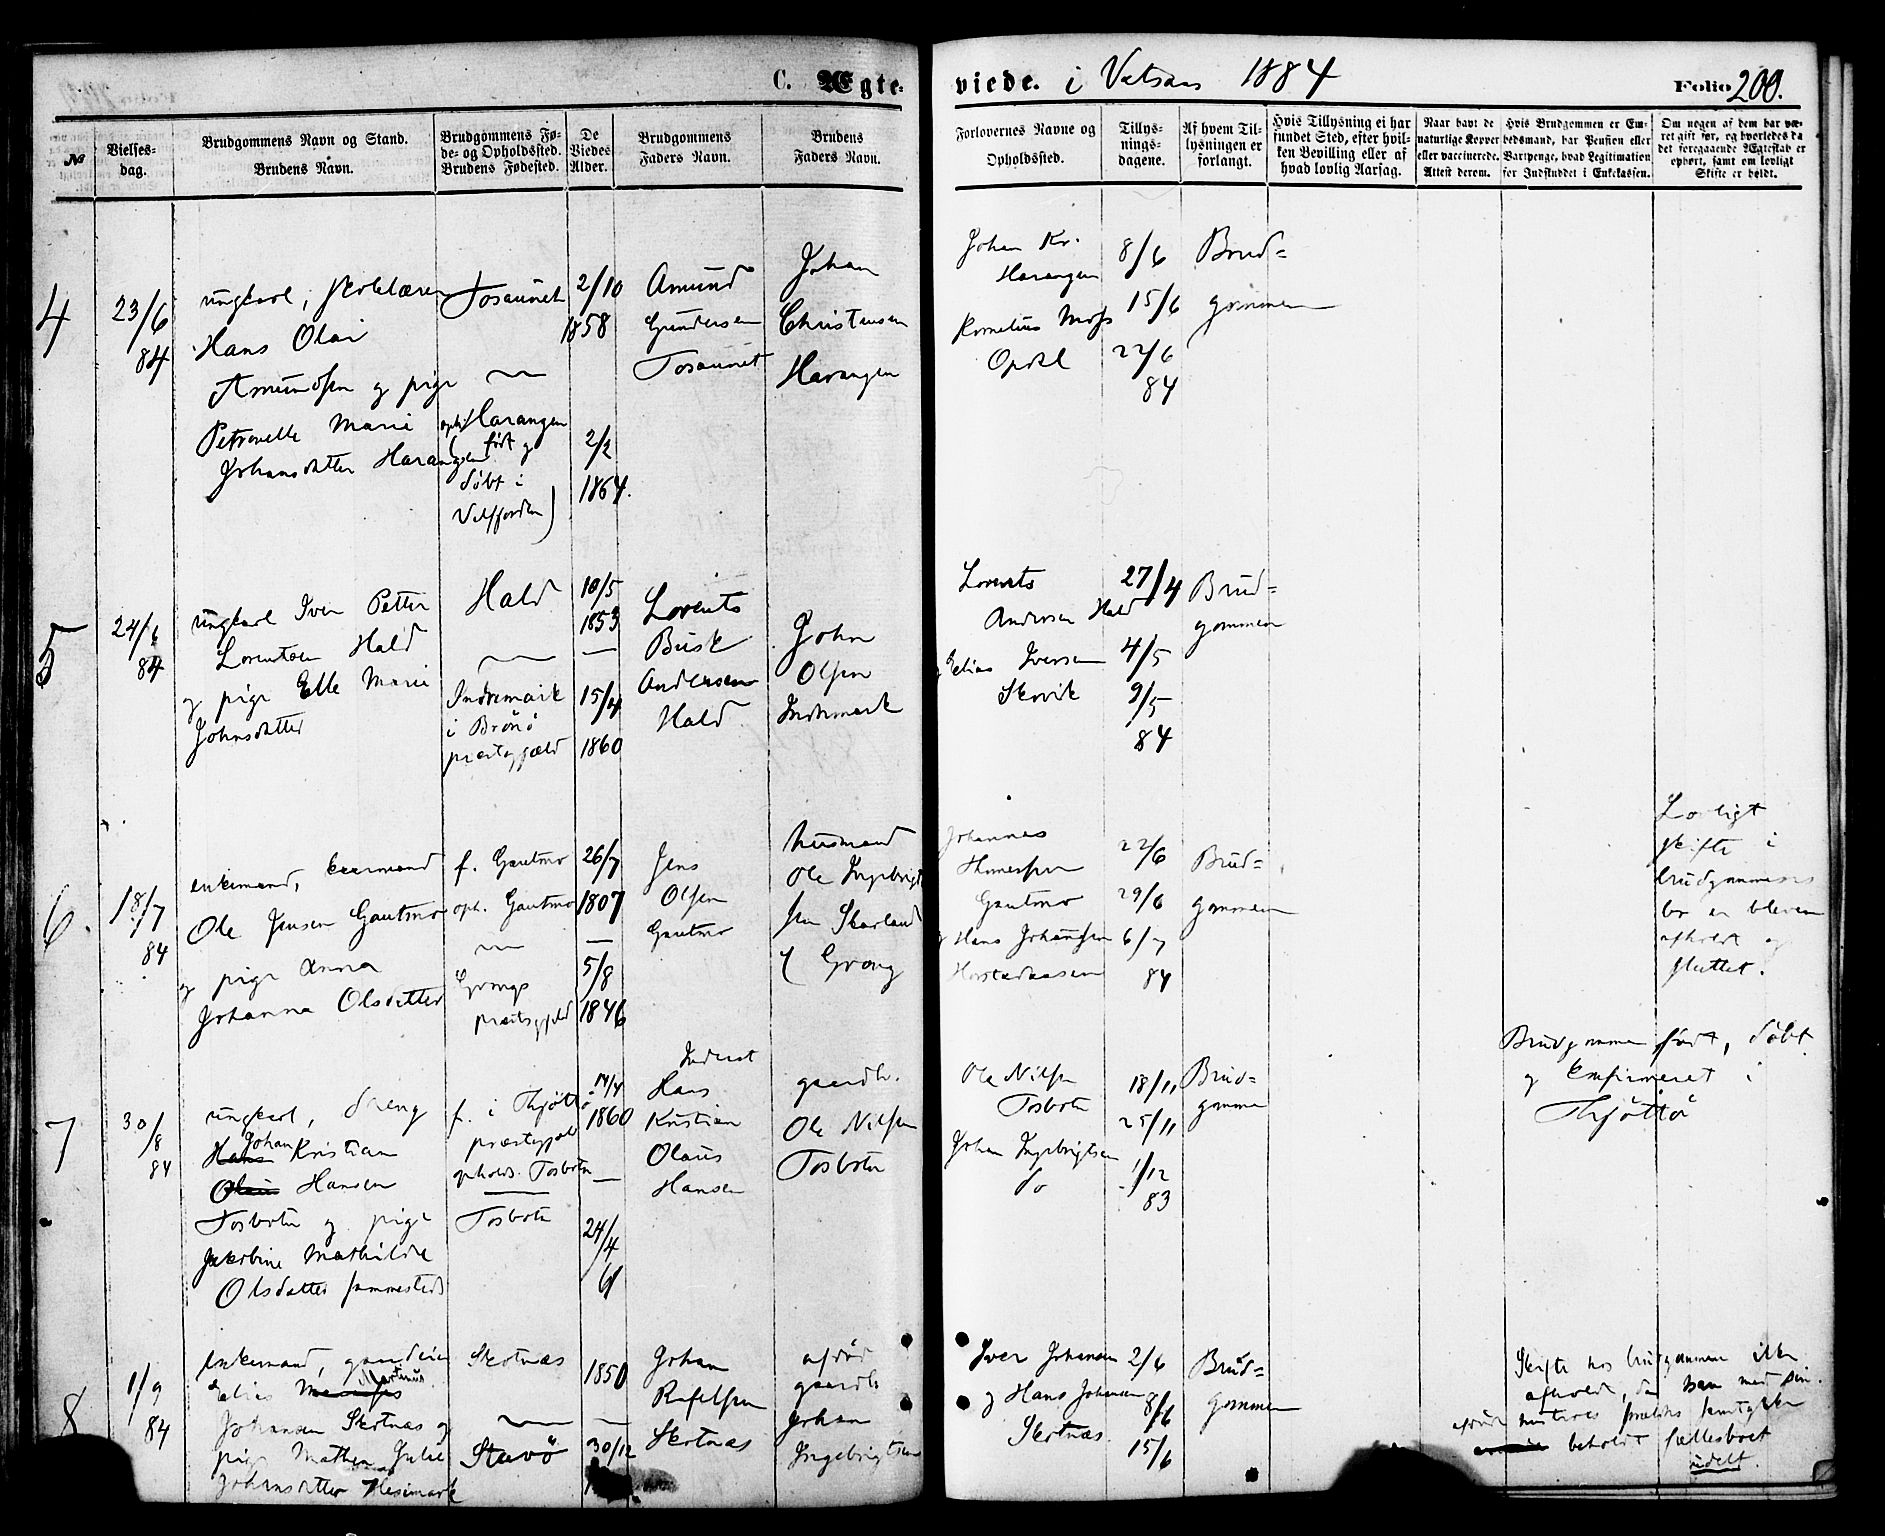 C. Ægte-
viede. i Vatsaas 1884
Folio 200.
№
Vielses-
dag.
Brudgommens Navn og Stand.
Brudens Navn.
Brudgommens Fø-
de- og Opholdssted.
Brudens Fødested.
De
Viedes
Alder.
Brudgommens
Faders Navn.
Brudens
Faders Navn.
Forlovernes Navne og
Opholdssted.
Tillys-
nings-
dagene.
Af hvem Til-
lysningen er
forlangt.
Hvis Tillysning ei har
fundet Sted, efter hvil-
ken Bevilling eller af
hvad lovlig Aarsag.
Naar havt de
naturlige Kopper
eller vaccinerede.
Attest derom.
Hvis Brudgommen er Em-
bedsmand, har Pension eller
Vartpenge, hvad Legitimation
for Indskuddet i Enkekassen.
Om nogen af dem har væ-
ret gift før, og hvorledes da
det foregaaende Ægteskab er
ophørt, samt om lovligt
Skifte er holdt.
4
23/6
84
ungkarl, skolelærer
Hans Olai
Amundsen og pige
Petronelle Marie
Johansdatter Harangen
Tosaunet
oph. Harangen
(født og
døbt i
Velfjorden)
2/10
1858
2/2
1864.
Amund
Gundersen
Tosaunet
Johan
Christensen
Harangen
Johan Kr.
Harangen
Kornelius Moss
Opdal
8/6
15/6
22/6
84
Brud=
gommen
5
24/6
84
ungkarl Iver Petter
Lorentsen Hald
og pige Elle Marie
Johnsdatter
Hald
Indremark
i Brönö
præstegjæld
10/5
1853
—
15/4
1860
Lorents
Busk
Andersen
Hald
John
Olsen
Indremark
Lorents
Andersen Hald
og Elias Iversen
Skovik
27/4
4/5
9/5
84
Brud=
gommen
6.
18/7
84
enkemand, kaarmand
Ole Jensen Gautmo
og pige Anna
Johanna Olsdatter
f. Gautmo
oph. Gautmo
Grongs
præstegjeld
26/7
1807
—
5/8
1846
Jens
Olsen
Gautmo
husmand
Ole Ingebrigt
sen Skarland
i Grong
Johannes
Gautmo
og Hans Johansen
22/6
29/6
6/7
84
Brud=
gommen
Lovligt
skifte i
brudgommens
bo er bleven
afholdt og
sluttet.
7
30/8
84
ungkarl, dreng
Johan
Hans Kristian
Olaus Hansen
Tosbotn og pige
Jakobine Mathilde
Olsdatter sammesteds
f. i Thjöttö
præstegjæld
opholds. Tosbotn
Tosbotn
14/4
1860
—
24/4
61
Inderst
Hans
Kristian
Olaus
Hansen
gaardb.
Ole Nilsen
Tosbotn
Ole Nilsen
Tosbotn
Johan Ingebrigtsen
do
18/11
25/11
1/12
83
Brud=
gommen
Brudgommen født, døbt
og konfirmeret i
Thjöttö
8
1/9
84
enkemand, gaardeier
Martinus
Elias
Johansen Skotnæs og
pige Mathea Julie
Johansdatter Hesimark
Skotnæs
Stavö
1850
—
30/12
Johan
Rafelsen
Skotnæs
afdød
gaardb
Johan
Ingebrigtsen
Iver Johansen
og Hans Johansen
Skotnæs
2/6
8/6
15/6
Brud=
gommen
Skifte hos brudgommen ikke
afholdt, da han med sin
afdøde hustrues forældres samtykke
beholdt fællesboet
udelt.